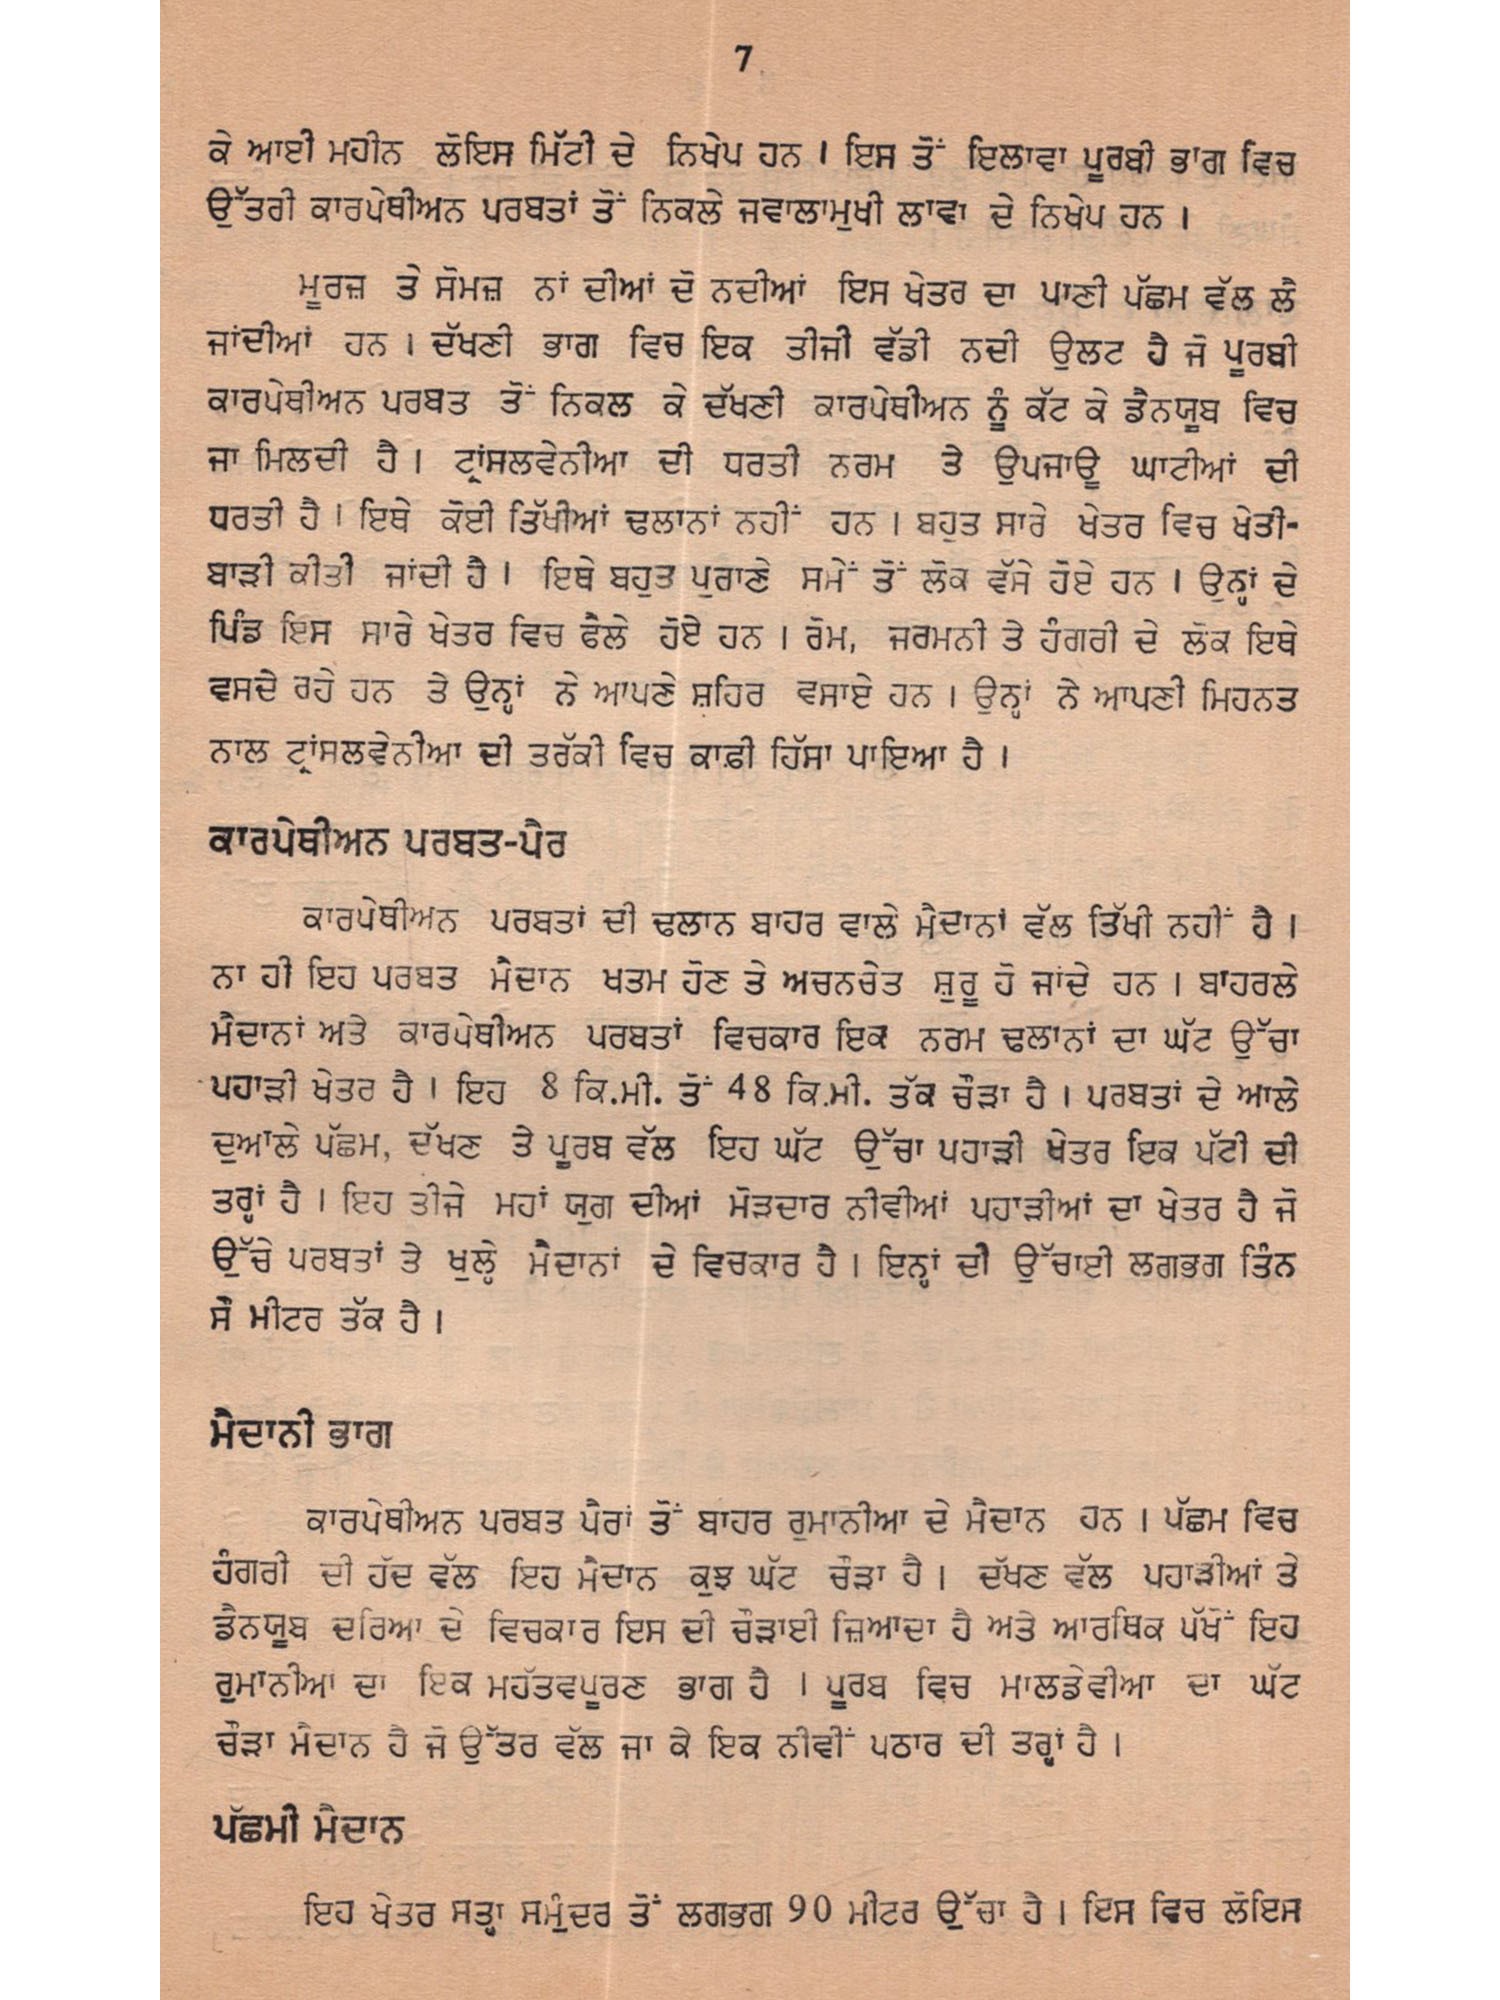 7
ਕੇ ਆਈ ਮਹੀਨ ਲੋਇਸ ਮਿੱਟੀ ਦੇ ਨਿਖੇਪ ਹਨ । ਇਸ ਤੋਂ ਇਲਾਵਾ ਪੂਰਬੀ ਭਾਗ ਵਿਚ
ਉੱਤਰੀ ਕਾਰਪੇਥੀਅਨ ਪਰਬਤਾਂ ਤੋਂ ਨਿਕਲੇ ਜਵਾਲਾਮੁਖੀ ਲਾਵਾ ਦੇ ਨਿਖੇਪ ਹਨ ।
ਮੂਰਜ਼ ਤੇ ਸੋਮਜ਼ ਨਾਂ ਦੀਆਂ ਦੋ ਨਦੀਆਂ ਇਸ ਖੇਤਰ ਦਾ ਪਾਣੀ ਪੱਛਮ ਵੱਲ ਲੈ
ਜਾਂਦੀਆਂ ਹਨ । ਦੱਖਣੀ ਭਾਗ ਵਿਚ ਇਕ ਤੀਜੀ ਵੱਡੀ ਨਦੀ ਉਲਟ ਹੈ ਜੋ ਪੂਰਬੀ
ਕਾਰਪੇਥੀਅਨ ਪਰਬਤ ਤੋਂ ਨਿਕਲ ਕੇ ਦੱਖਣੀ ਕਾਰਪੇਥੀਅਨ ਨੂੰ ਕੱਟ ਕੇ ਡੈਨਯੂਬ ਵਿਚ
ਜਾ ਮਿਲਦੀ ਹੈ । ਟ੍ਰਾਂਸਲਵੇਨੀਆ ਦੀ ਧਰਤੀ ਨਰਮ ਤੇ ਉਪਜਾਊ ਘਾਟੀਆਂ ਦੀ
ਧਰਤੀ ਹੈ । ਇਥੇ ਕੋਈ ਤਿੱਖੀਆਂ ਢਲਾਨਾਂ ਨਹੀਂ ਹਨ । ਬਹੁਤ ਸਾਰੇ ਖੇਤਰ ਵਿਚ ਖੇਤੀ-
ਬਾੜੀ ਕੀਤੀ ਜਾਂਦੀ ਹੈ । ਇਥੇ ਬਹੁਤ ਪੁਰਾਣੇ ਸਮੇਂ ਤੋਂ ਲੋਕ ਵੱਸੇ ਹੋਏ ਹਨ । ਉਨ੍ਹਾਂ ਦੇ
ਪਿੰਡ ਇਸ ਸਾਰੇ ਖੇਤਰ ਵਿਚ ਫੈਲੇ ਹੋਏ ਹਨ । ਰੋਮ, ਜਰਮਨੀ ਤੇ ਹੰਗਰੀ ਦੇ ਲੋਕ ਇਥੇ
ਵਸਦੇ ਰਹੇ ਹਨ ਤੇ ਉਨ੍ਹਾਂ ਨੇ ਆਪਣੇ ਸ਼ਹਿਰ ਵਸਾਏ ਹਨ । ਉਨ੍ਹਾਂ ਨੇ ਆਪਣੀ ਮਿਹਨਤ
ਨਾਲ ਟ੍ਰਾਂਸਲਵੇਨੀਆ ਦੀ ਤਰੱਕੀ ਵਿਚ ਕਾਫ਼ੀ ਹਿੱਸਾ ਪਾਇਆ ਹੈ ।
ਕਾਰਪੇਥੀਅਨ ਪਰਬਤ-ਪੈਰ
ਕਾਰਪੇਥੀਅਨ ਪਰਬਤਾਂ ਦੀ ਢਲਾਨ ਬਾਹਰ ਵਾਲੇ ਮੈਦਾਨਾਂ ਵੱਲ ਤਿੱਖੀ ਨਹੀਂ ਹੈ ।
ਨਾ ਹੀ ਇਹ ਪਰਬਤ ਮੈਦਾਨ ਖਤਮ ਹੋਣ ਤੇ ਅਚਨਚੇਤ ਸ਼ੁਰੂ ਹੋ ਜਾਂਦੇ ਹਨ । ਬਾਹਰਲੇ
ਮੈਦਾਨਾਂ ਅਤੇ ਕਾਰਪੇਥੀਅਨ ਪਰਬਤਾਂ ਵਿਚਕਾਰ ਇਕ ਨਰਮ ਢਲਾਨਾਂ ਦਾ ਘੱਟ ਉੱਚਾ
ਪਹਾੜੀ ਖੇਤਰ ਹੈ । ਇਹ 8 ਕਿ.ਮੀ. ਤੋਂ 48 ਕਿ.ਮੀ. ਤੱਕ ਚੌੜਾ ਹੈ । ਪਰਬਤਾਂ ਦੇ ਆਲੇ
ਦੁਆਲੇ ਪੱਛਮ, ਦੱਖਣ ਤੇ ਪੂਰਬ ਵੱਲ ਇਹ ਘੱਟ ਉੱਚਾ ਪਹਾੜੀ ਖੇਤਰ ਇਕ ਪੱਟੀ ਦੀ
ਤਰ੍ਹਾਂ ਹੈ । ਇਹ ਤੀਜੇ ਮਹਾਂ ਯੁਗ ਦੀਆਂ ਮੋੜਦਾਰ ਨੀਵੀਆਂ ਪਹਾੜੀਆਂ ਦਾ ਖੇਤਰ ਹੈ ਜੋ
ਉੱਚੇ ਪਰਬਤਾਂ ਤੇ ਖੁਲ੍ਹੇ ਮੈਦਾਨਾਂ ਦੇ ਵਿਚਕਾਰ ਹੈ । ਇਨ੍ਹਾਂ ਦੀ ਉੱਚਾਈ ਲਗਭਗ ਤਿੰਨ
ਸੌ ਮੀਟਰ ਤੱਕ ਹੈ ।
ਮੈਦਾਨੀ ਭਾਗ
ਕਾਰਪੇਥੀਅਨ ਪਰਬਤ ਪੈਰਾਂ ਤੋਂ ਬਾਹਰ ਰੁਮਾਨੀਆ ਦੇ ਮੈਦਾਨ ਹਨ । ਪੱਛਮ ਵਿਚ
ਹੰਗਰੀ ਦੀ ਹੱਦ ਵੱਲ ਇਹ ਮੈਦਾਨ ਕੁਝ ਘੱਟ ਚੌੜਾ ਹੈ । ਦੱਖਣ ਵੱਲ ਪਹਾੜੀਆਂ ਤੇ
ਡੈਨਯੂਬ ਦਰਿਆ ਦੇ ਵਿਚਕਾਰ ਇਸ ਦੀ ਚੌੜਾਈ ਜ਼ਿਆਦਾ ਹੈ ਅਤੇ ਆਰਥਿਕ ਪੱਖੋਂ ਇਹ
ਰੁਮਾਨੀਆ ਦਾ ਇਕ ਮਹੱਤਵਪੂਰਣ ਭਾਗ ਹੈ । ਪੂਰਬ ਵਿਚ ਮਾਲਡੇਵੀਆ ਦਾ ਘੱਟ
ਚੌੜਾ ਮੈਦਾਨ ਹੈ ਜੋ ਉੱਤਰ ਵੱਲ ਜਾ ਕੇ ਇਕ ਨੀਵੀਂ ਪਠਾਰ ਦੀ ਤਰ੍ਹਾਂ ਹੈ ।
ਪੱਛਮੀ ਮੈਦਾਨ
ਇਹ ਖੇਤਰ ਸਤ੍ਹਾ ਸਮੁੰਦਰ ਤੋਂ ਲਗਭਗ 90 ਮੀਟਰ ਉੱਚਾ ਹੈ । ਇਸ ਵਿਚ ਲੋਇਸ